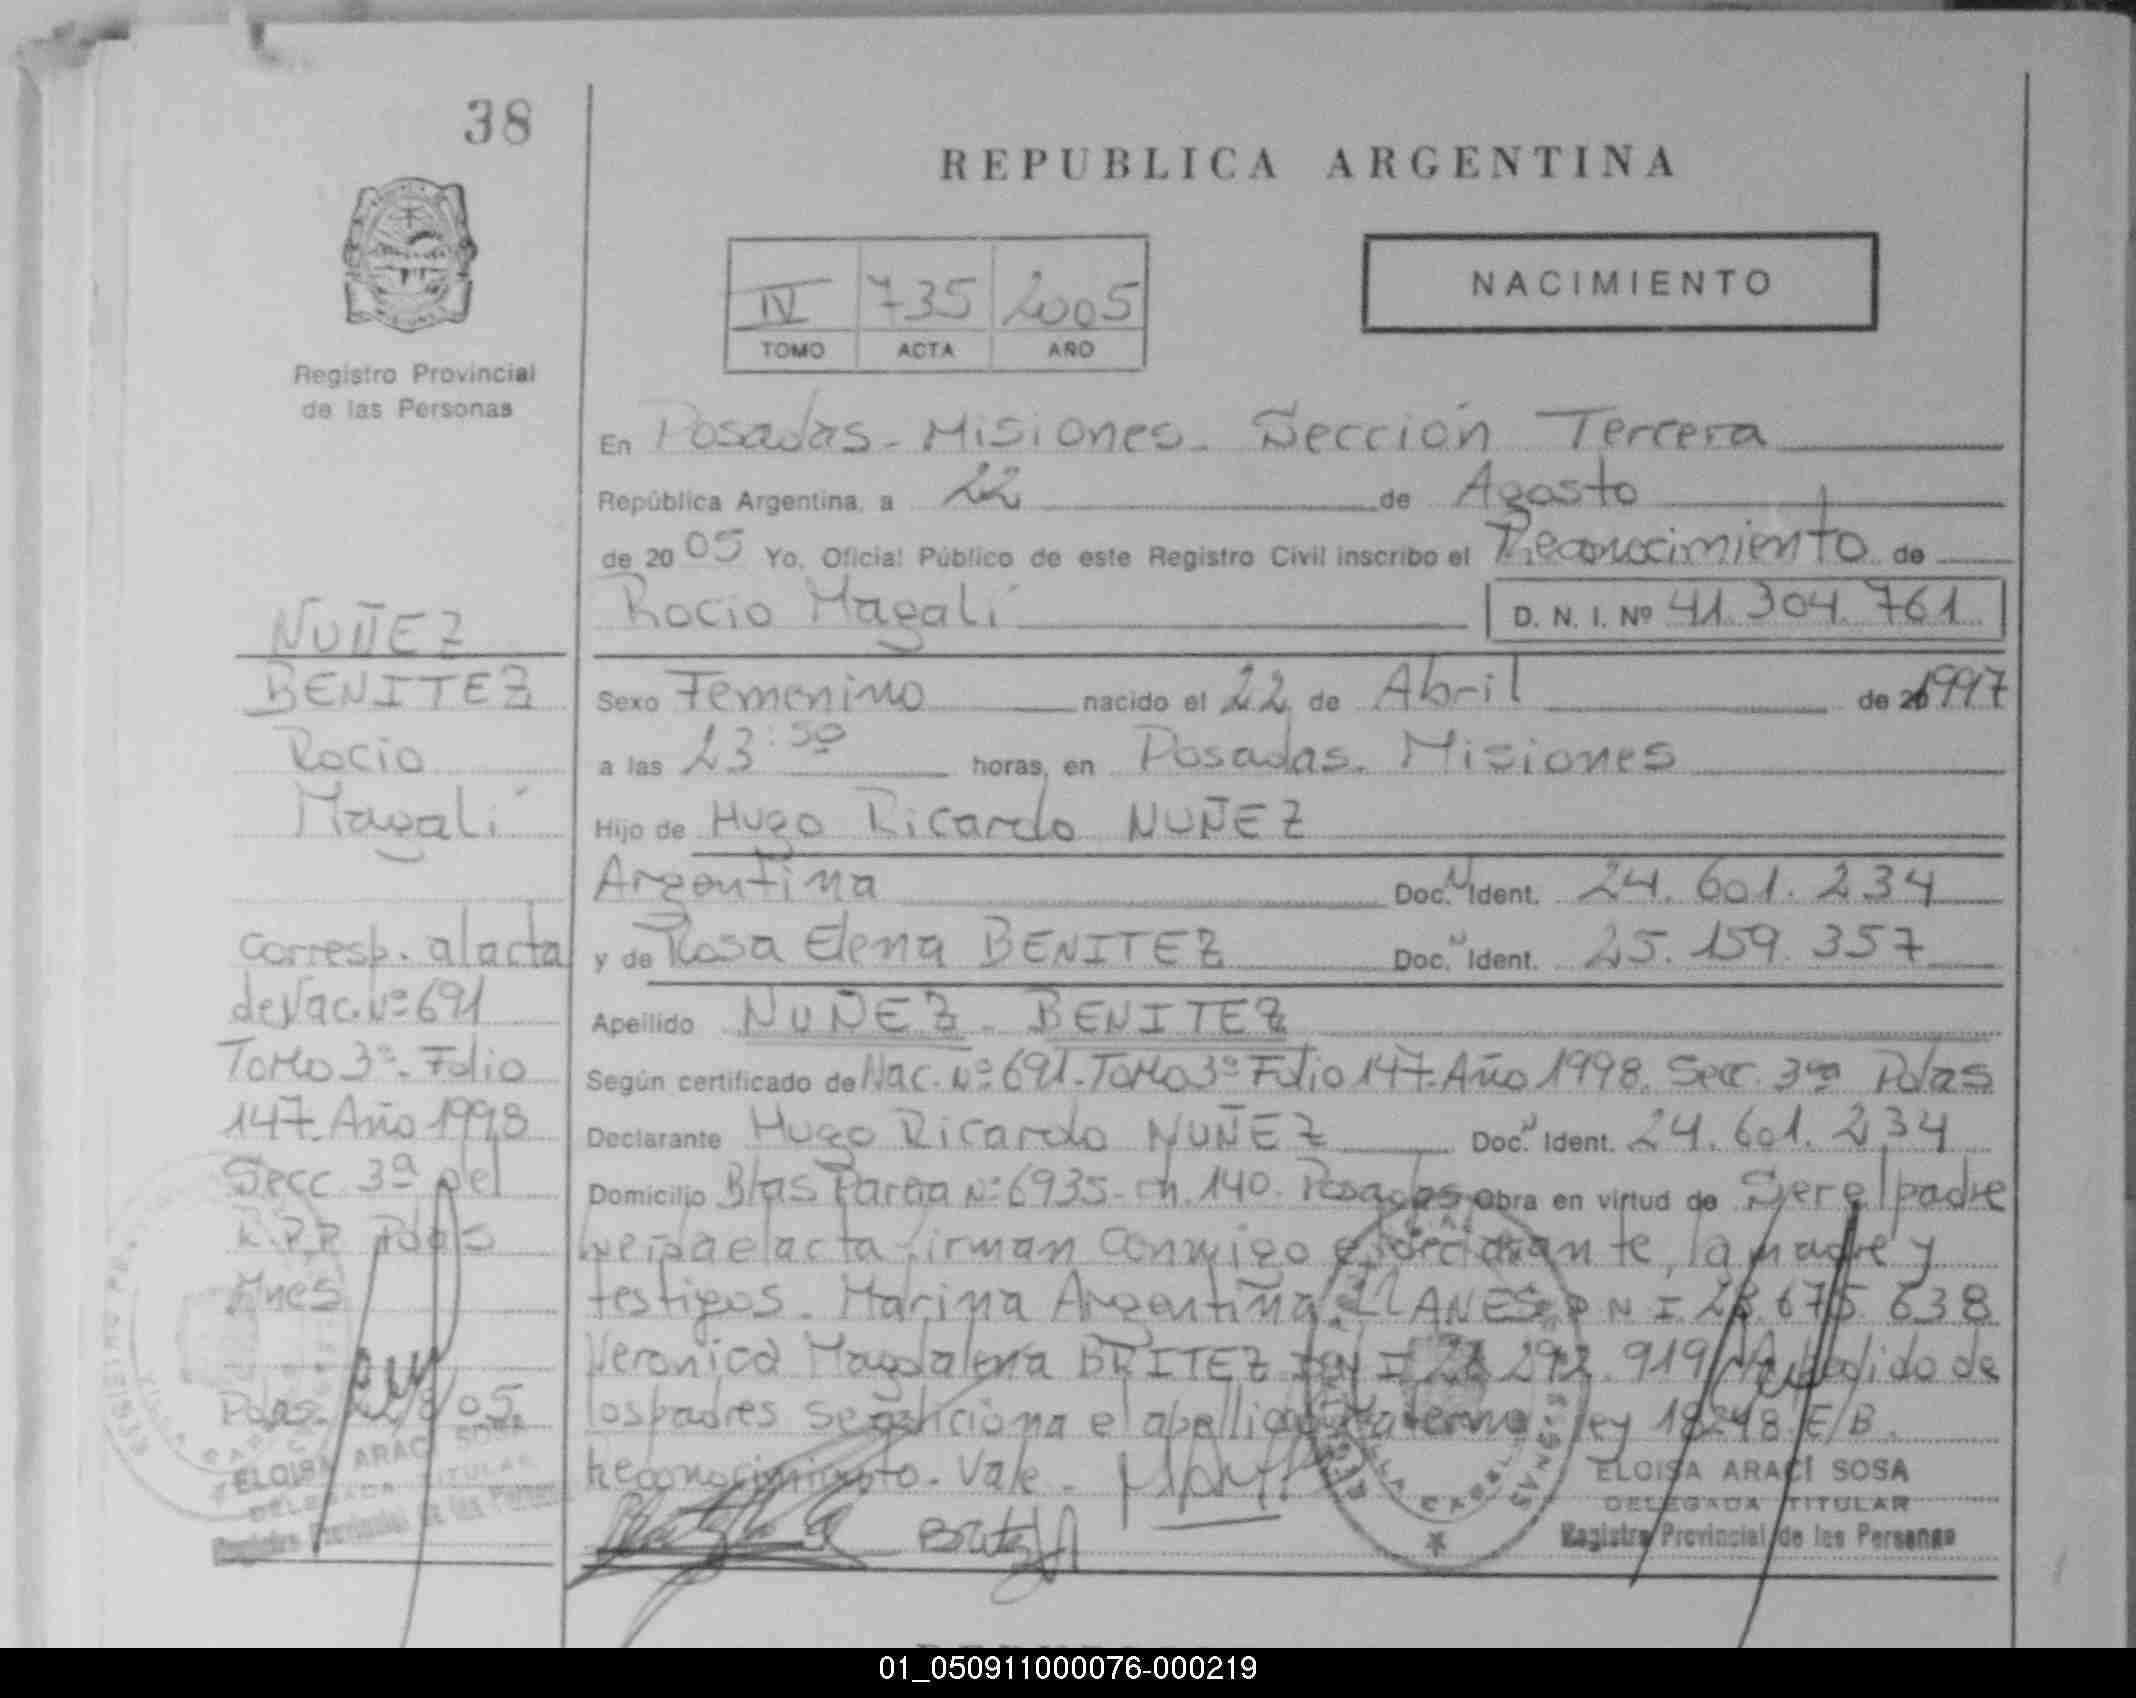 38
REPUBLICA ARGENTINA
IV 735 2005
TOMO ACTA AÑO
NACIMIENTO
Registro Provincial
de las Personas
En Posadas - Misiones - Sección Tercera
República Argentina, a 22 de Agosto
de 2005 Yo, Oficial Público de este Registro Civil inscribo el Reconocimiento de
Rocio Magalí D. N. I. Nº 41.304.761
Sexo Femenino nacido el 22 de Abril de 20 1997
a las 23:50 horas, en Posadas. Misiones
Hijo de Hugo Ricardo NUÑEZ
Argentina Doc. N Ident. 24.601.234
y de Rosa Elena BENITEZ Doc. N Ident. 25.159.357
Apellido NUÑEZ - BENITEZ
Según certificado de Nac. Nº 691 - Tomo 3º Folio 147 - Año 1998. Secc. 3ra Pdas
Declarante Hugo Ricardo NUÑEZ Doc. N Ident. 24.601.234
Domicilio Blas Parera Nº 6935 - ch. 140. Posadas Obra en virtud de Ser el padre
leida el acta firman conmigo el declarante, la madre y
testigos. Marina Argentina LLANES D N I 28.675.638
Veronica Magdalena BRITEZ D N I 919 A pedido de
los padres se adiciona el apellido materno ley 18248. E/B.
Reconocimiento - Vale -
ELOISA ARACÍ SOSA
DELEGADA TITULAR
Registro Provincial de las Personas
NUÑEZ
BENITEZ
Rocio
Magalí
Corresp. al acta
de Nac. Nº 691
Tomo 3º. Folio
147. Año 1998
Secc. 3ª del
R.P.P. Pdas
Mnes
Pdas. 22/8/05
ELOISA ARACÍ SOSA
DELEGADA TITULAR
Registro Provincial de las Personas
01_050911000076-000219